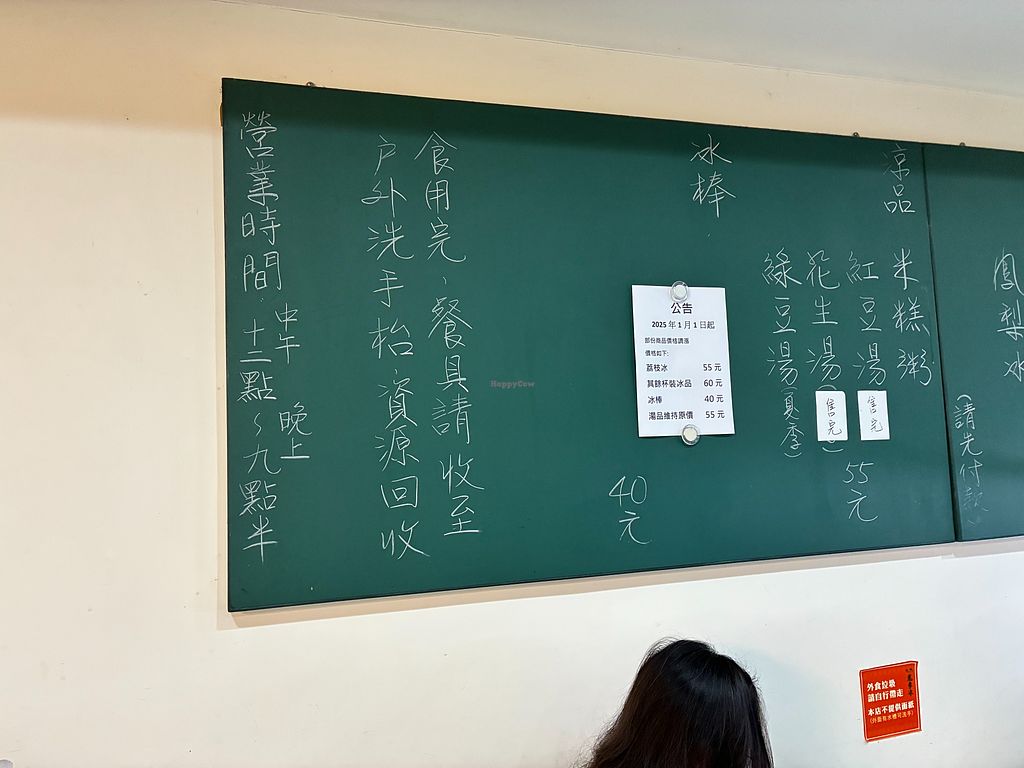 鳳梨冰
(請先付款)
涼品
米糕粥
紅豆湯
售完
花生湯
售完
綠豆湯(夏季)
55元
冰棒
40元
公告
2025年1月1日起
部份商品價格調漲
價格如下:
荔枝冰 55元
其餘杯裝冰品 60元
冰棒 40元
湯品維持原價 55元
食用完,餐具請收至
戶外洗手枱,資源回收
營業時間:中午十二點~晚上九點半
外食垃圾
請自行帶走
本店不提供面紙
(外面有水槽可洗手)
HappyCow